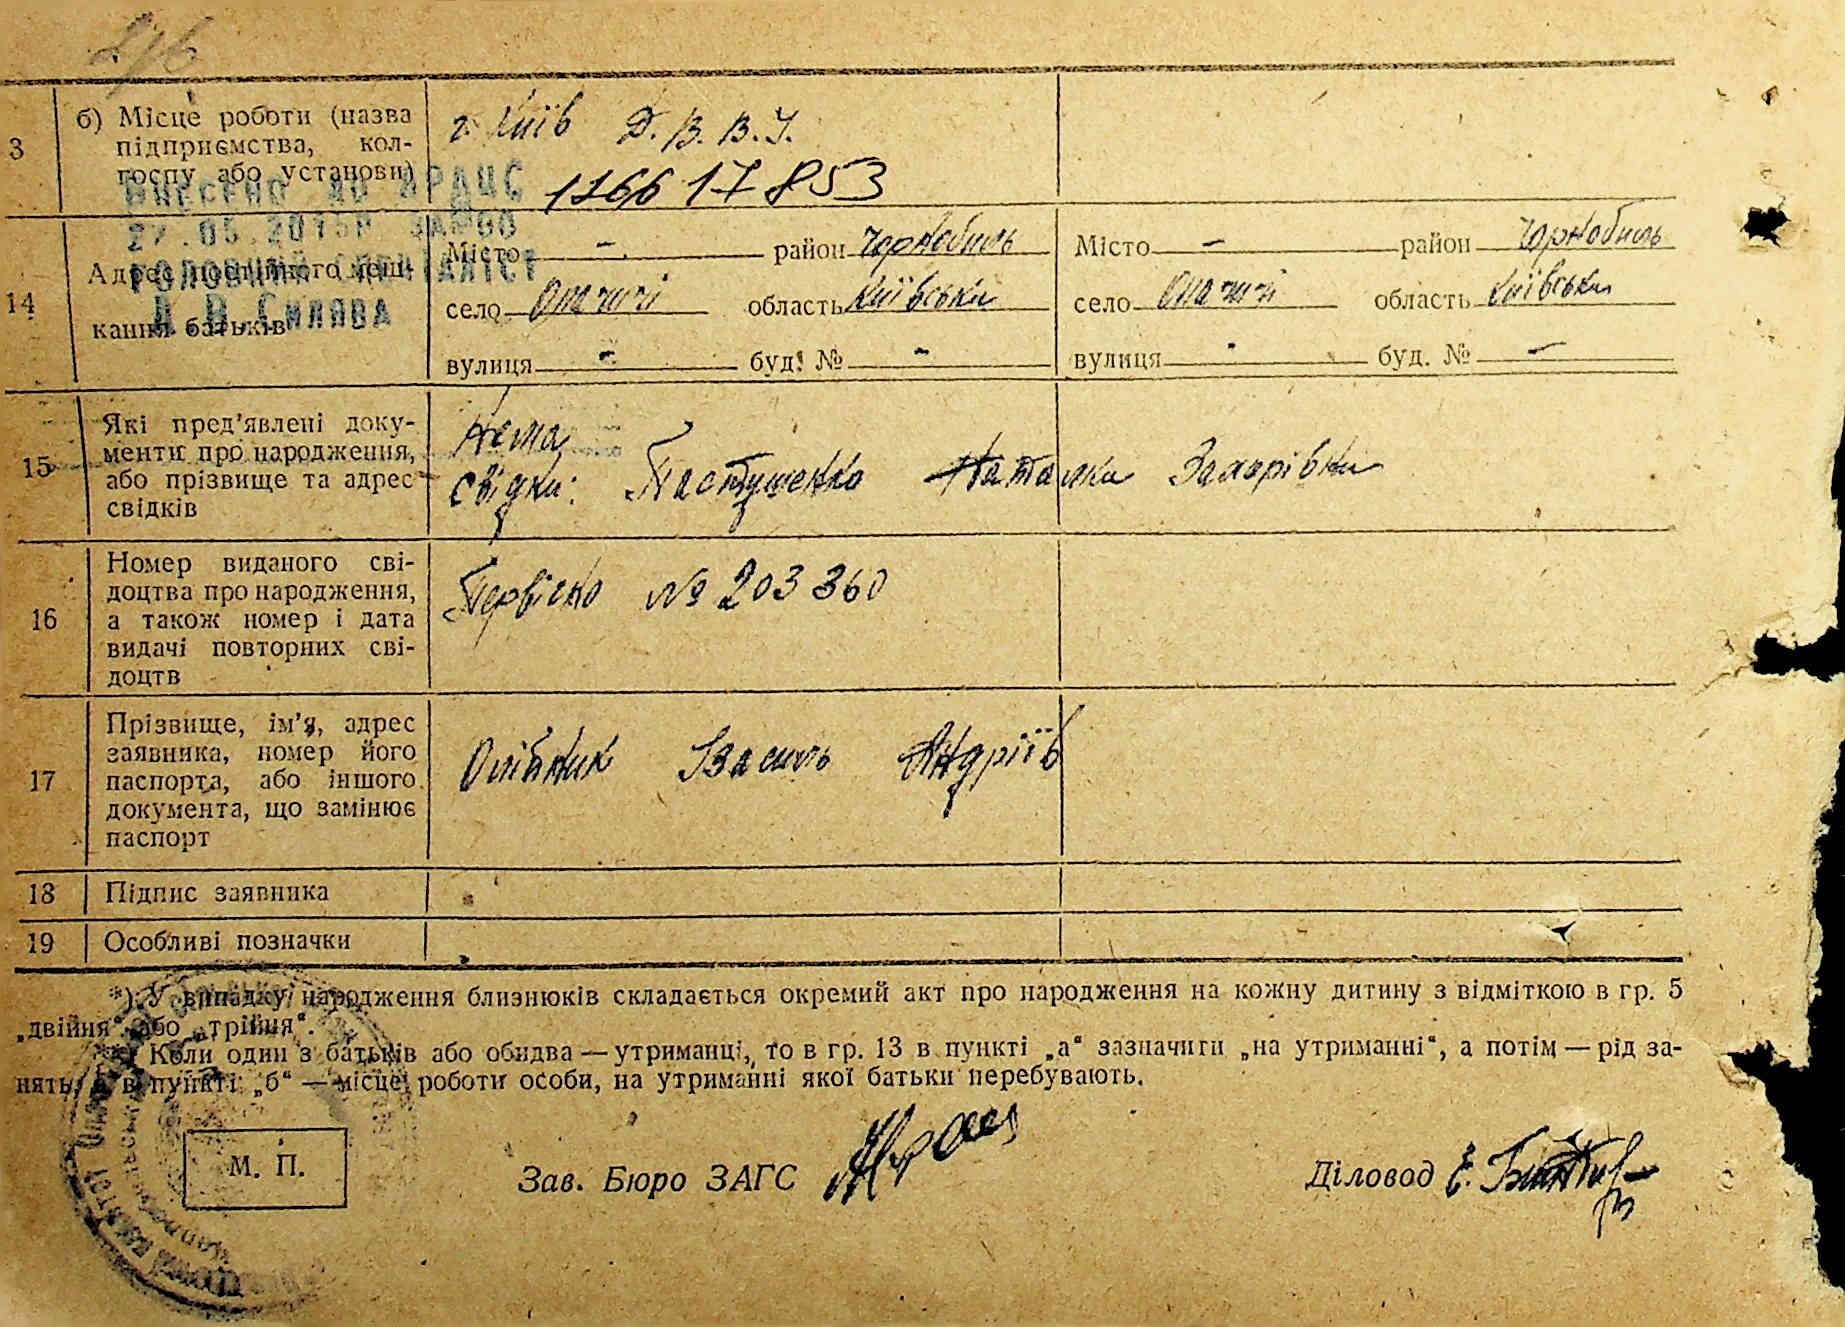 216
3 б) Місце роботи (назва г. Київ Д. В. В. У.
підприємства, кол-
госпу або установи) 116617853
ВНЕСЕНО ДО ДРАЦС
ГОЛОВНИЙ СПЕЦІАЛІСТ
14 Адрес постійного меш-
кання батьків
Місто - район Чорнобиль Місто - район Чорнобиль
село Опачичі область Київська село Опачичі область Київська
вулиця - буд. № - вулиця - буд. № -
15 Які пред'явлені доку-
менти про народження,
або прізвище та адрес
свідків
Нема
свідки: Пастушенко Наталка
16 Номер виданого сві-
доцтва про народження,
а також номер і дата
видачі повторних сві-
доцтв
Первісно № 203360
17 Прізвище, ім'я, адрес
заявника, номер його
паспорта, або іншого
документа, що замінює
паспорт
Олійник Василь Андріїв
18 Підпис заявника
19 Особливі позначки
*) У випадку народження близнюків складається окремий акт про народження на кожну дитину з відміткою в гр. 5
„двійня“ або „трійня“.
**) Коли один з батьків або обидва — утриманці, то в гр. 13 в пункті „а“ зазначити „на утриманні“, а потім — рід за-
нять, а в пункті „б“ — місце роботи особи, на утриманні якої батьки перебувають.
М. П. Зав. Бюро ЗАГС Діловод